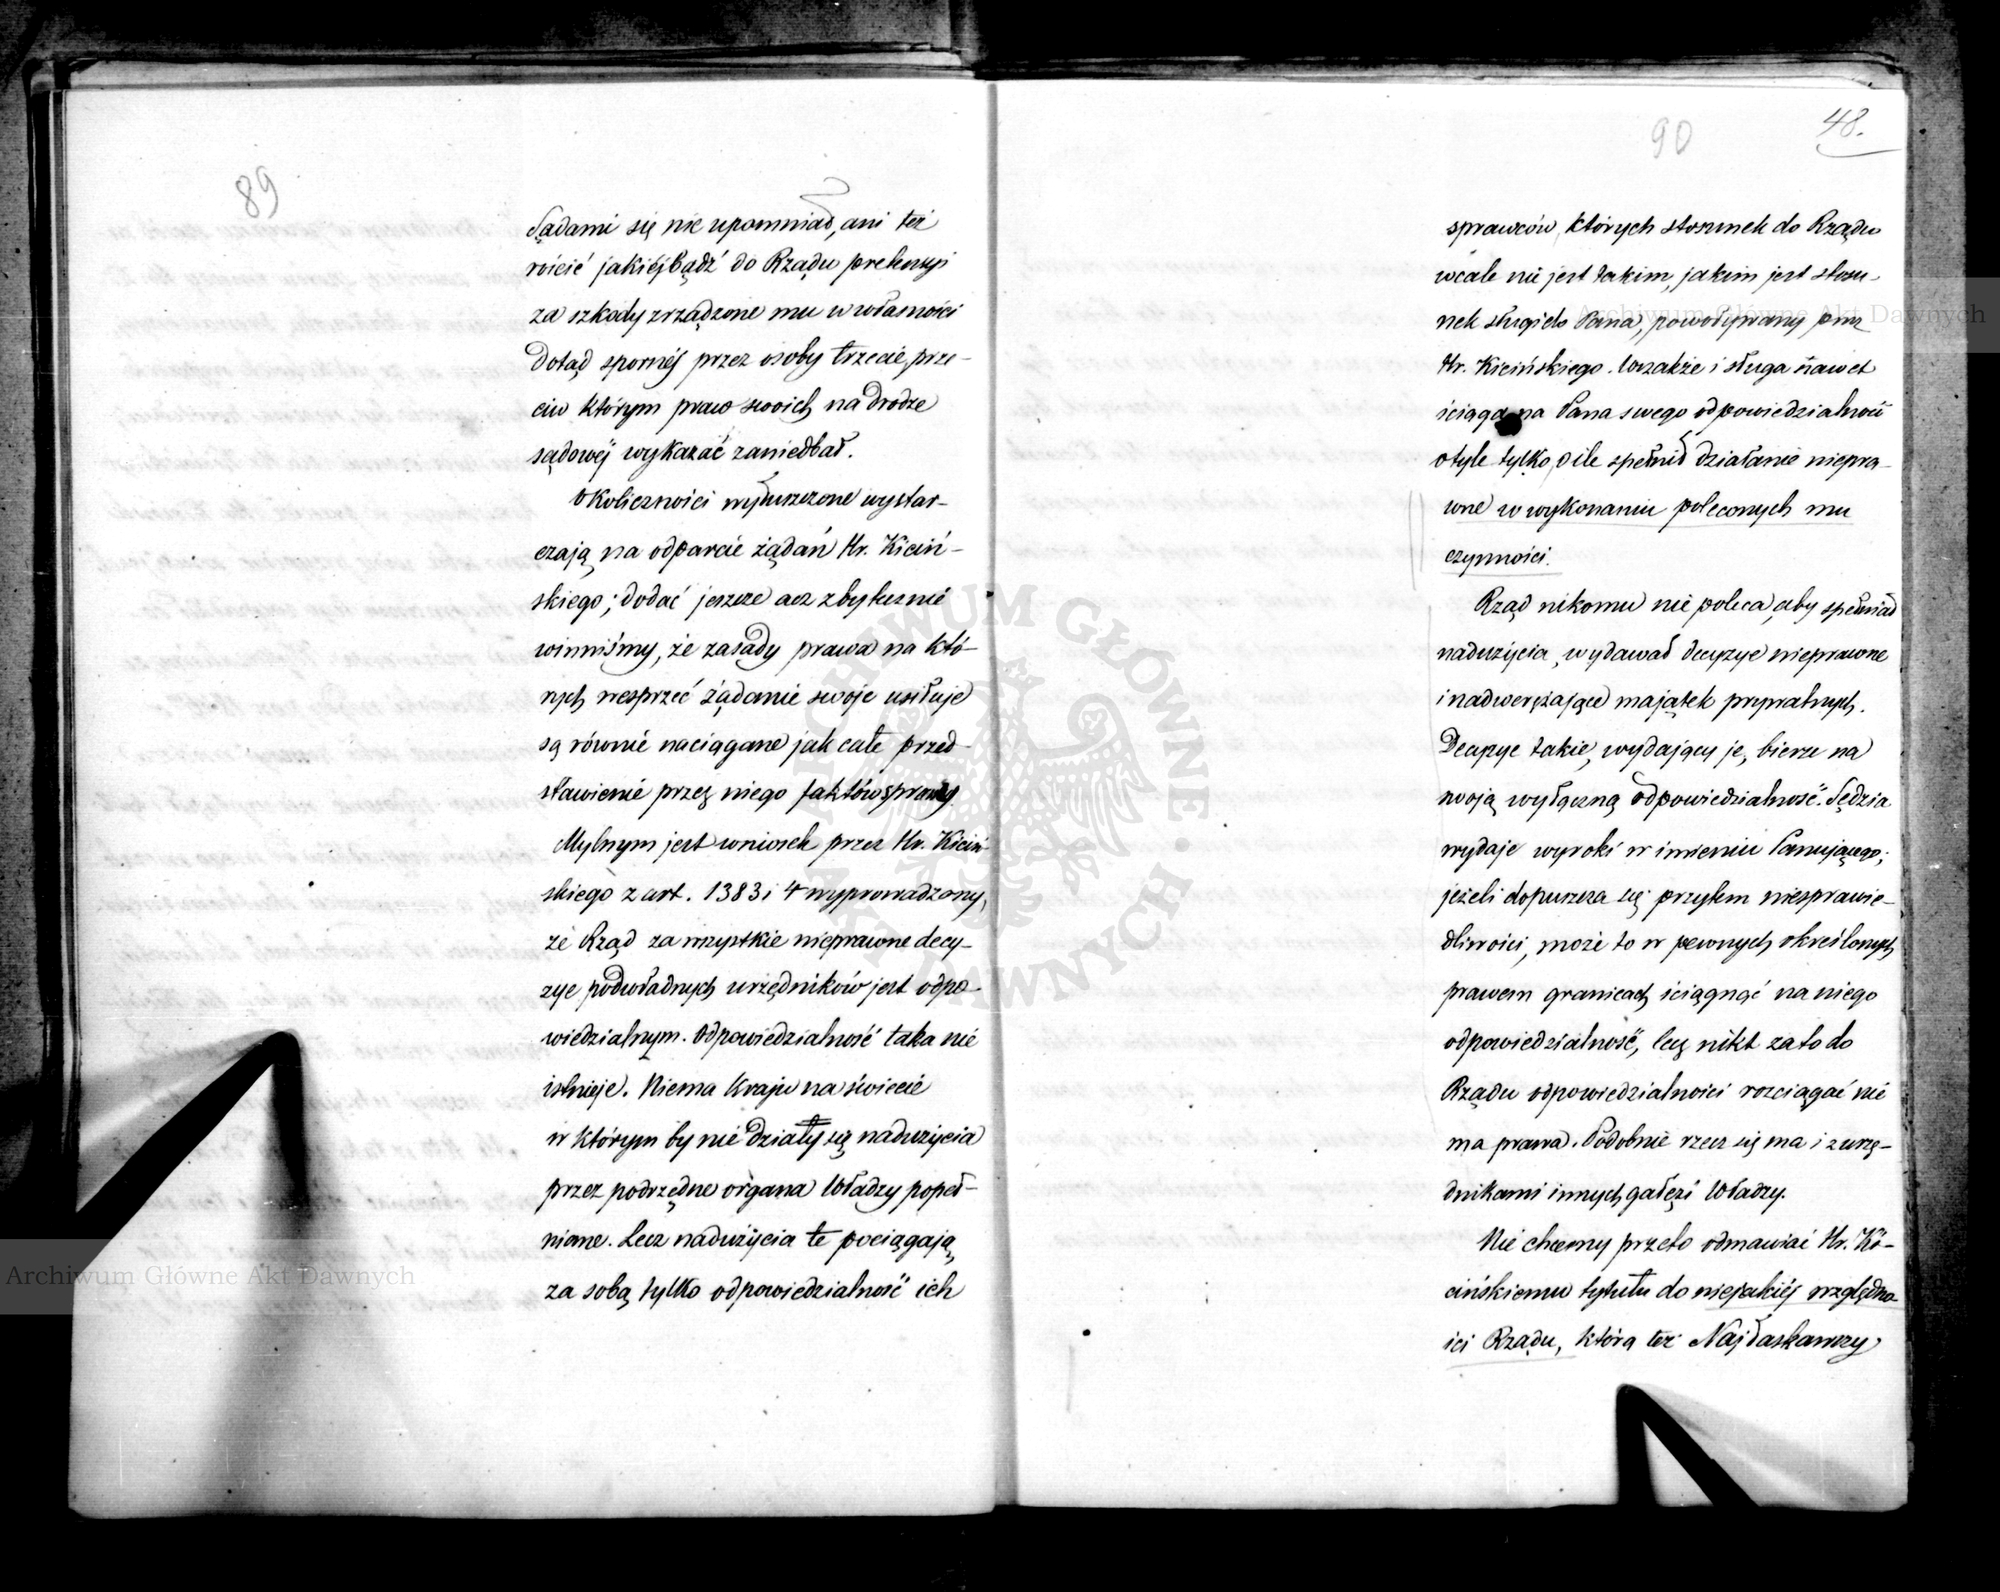 89
Sądami się nie upomniał, ani też
rościć jakiéjbądź do Rządu pretensyi
za szkody zrządzone mu w własności
dotąd spornéj przez osoby trzecie, prze-
ciw którym praw swoich na drodze
sądowéj wykazać zaniedbał.
Okoliczności wyłuszczone wystar-
czają na odparcie żądań Hr. Kiciń-
skiego; dodać jeszcze acz zbytecznie
winniśmy, że zasady prawa na któ-
rych wesprzeć żądanie swoje usiłuje
są równie naciągane jak całe przed-
stawienie przez niego faktów sprawy.
Mylnym jest wniosek przez Hr. Kiciń-
skiego z art. 1383 i 4 wyprowadzony,
że Rząd za wszystkie nieprawne decy-
zye podwładnych urzędników jest odpo-
wiedzialnym. Odpowiedzialność taka nie
istnieje. Niema Kraju na świecie
w którym by nie działy się nadużycia
przez podrzędne organa Władzy popeł-
niane. Lecz nadużycia te pociągają
za sobą tylko odpowiedzialność ich
90
48.
sprawców, których stosunek do Rządu
wcale nie jest takim, jakim jest stosu-
nek sługi do Pana, powoływany prez
Hr. Kicińskiego. Wszakże i sługa nawet
ściąga na Pana swego odpowiedzialność
o tyle tylko, o ile spełnił działanie niepra-
wne w wykonaniu poleconych mu
czynności.
Rząd nikomu nie poleca, aby spełniał
nadużycia, wydawał decyzye nieprawne
i nadwerężające majątek prywatnych.
Decyzye takie, wydający je, bierze na
swoją wyłączną odpowiedzialność. Sędzia
wydaje wyroki w imieniu Panującego;
jeżeli dopuszcza się przytem niesprawie-
dliwości, może to w pewnych określonych
prawem granicach ściągnąć na niego
odpowiedzialność, lecz nikt za to do
Rządu odpowiedzialności rozciągać nie
ma prawa. Podobnie rzecz się ma i z urzę-
dnikami innych gałęzi Władzy.
Nie chcemy przeto odmawiać Hr. Ki-
cińskiemu tytułu do niejakiéj względno-
ści Rządu, którą też Najłaskawszy
Archiwum Główne Akt Dawnych
Archiwum Główne Akt Dawnych
ARCHIWUM GŁÓWNE AKT DAWNYCH